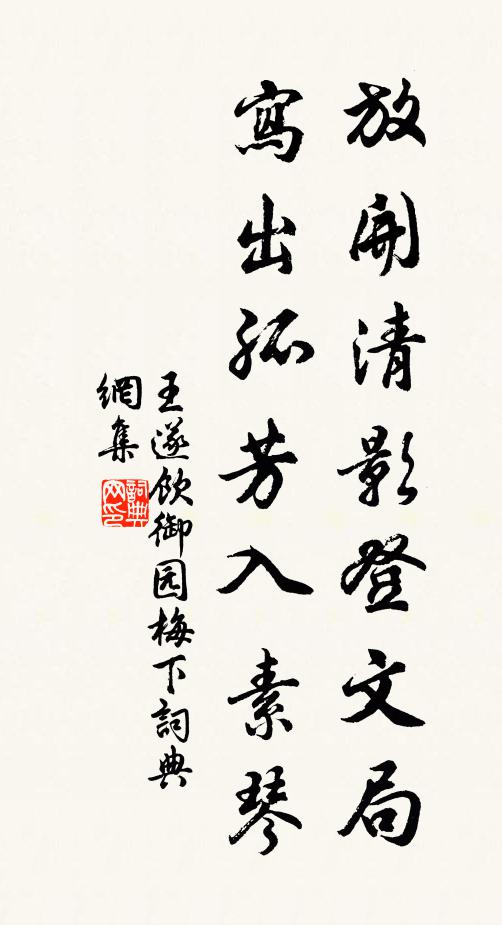 放開清影登文局
寫出孤芳入素琴
王遂飲御园梅下詞典
網集
詞典
网印